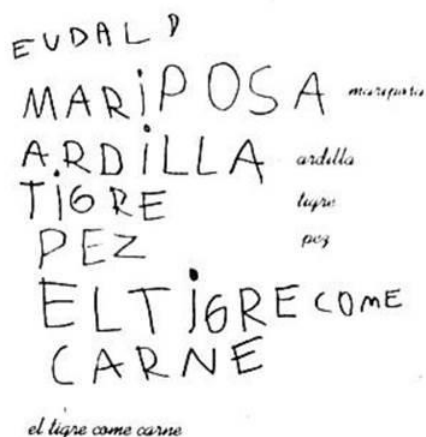 EUDALD
MARiPOSA mariposa
ARDiLLA ardilla
TiGRE tigre
PEZ pez
ELTiGRE COME
CARNE
el tigre come carne